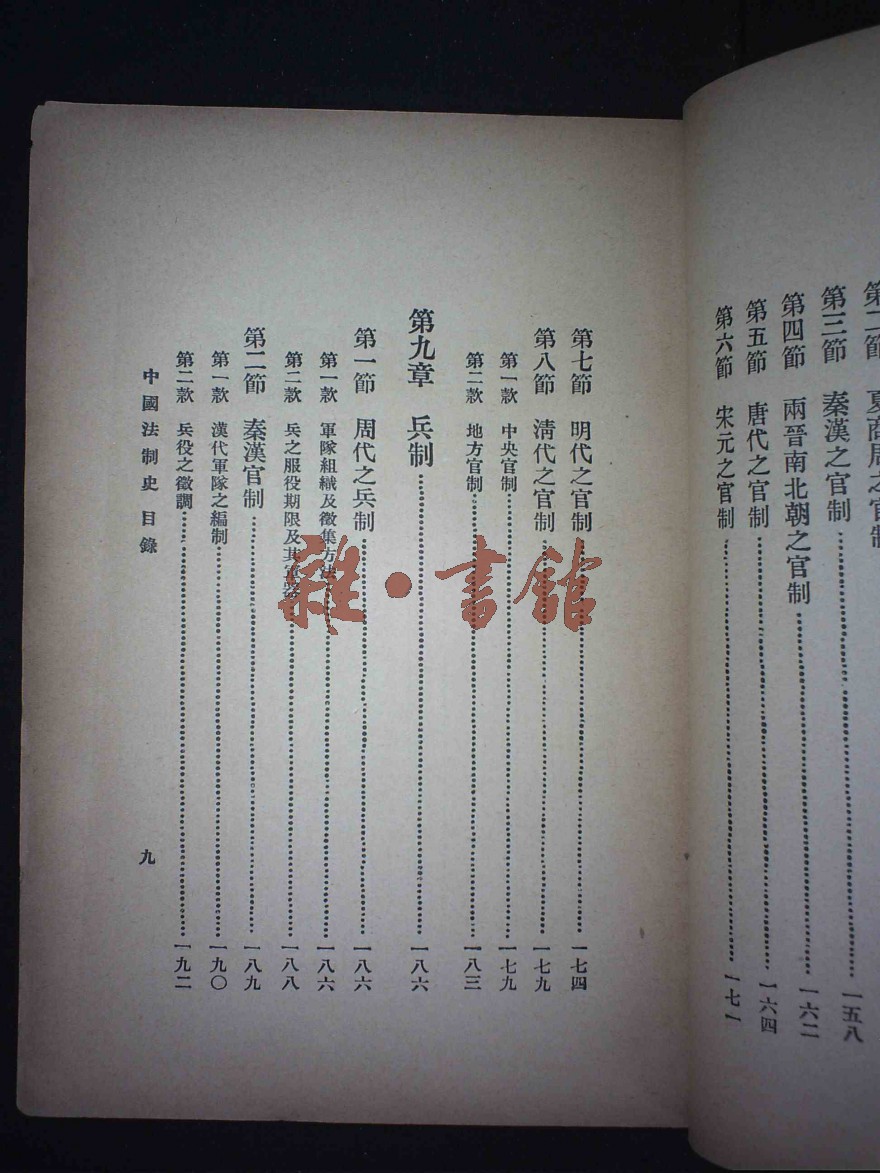 第二節 夏商周之官制
第三節 秦漢之官制 一五八
第四節 兩晉南北朝之官制 一六二
第五節 唐代之官制 一六四
第六節 宋元之官制 一七一
第七節 明代之官制 一七四
第八節 清代之官制 一七九
第一款 中央官制 一七九
第二款 地方官制 一八三
第九章 兵制 一八六
第一節 周代之兵制 一八六
第一款 軍隊組織及徵集方法 一八六
第二款 兵之服役期限及其軍 一八八
第二節 秦漢官制 一八九
第一款 漢代軍隊之編制 一九〇
第二款 兵役之徵調 一九二
中國法制史 目錄 九
雜·書館